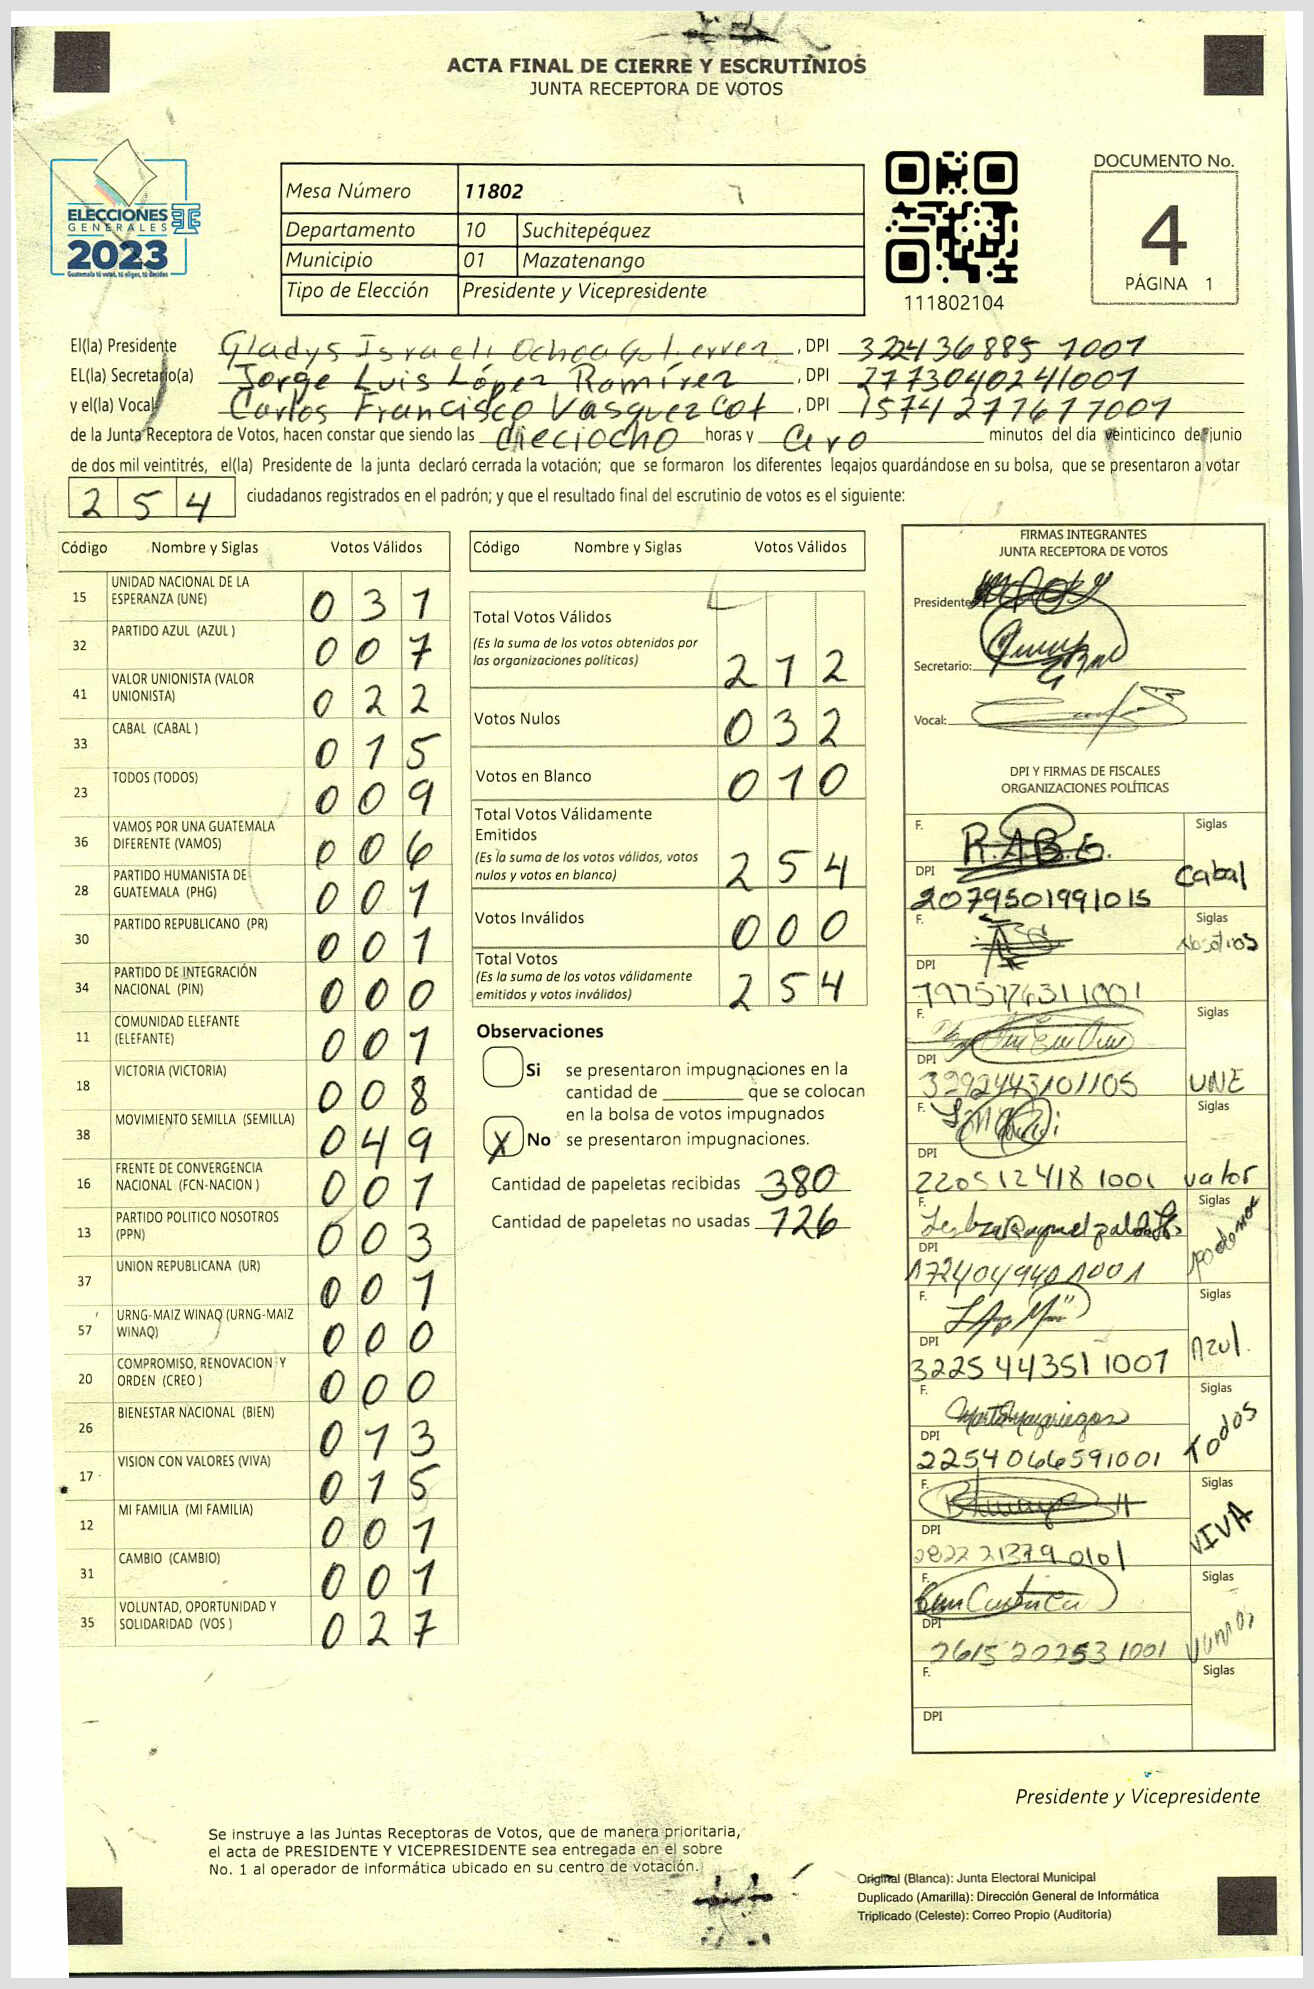 ACTA FINAL DE CIERRE Y ESCRUTINIOS
JUNTA RECEPTORA DE VOTOS
ELECCIONES
GENERALES
2023
Guatemala tú votas, tú eliges, tú decides
Mesa Número 11802
Departamento 10 Suchitepéquez
Municipio 01 Mazatenango
Tipo de Elección Presidente y Vicepresidente
111802104
DOCUMENTO No.
4
PÁGINA 1
El(la) Presidente Gladys Israeli Ochoa Gutierrez, DPI 322436885 1001
EL(la) Secretario(a) Jorge Luis López Ramírez, DPI 2773040241001
y el(la) Vocal Carlos Francisco Vasquez Cot, DPI 1574277617001
de la Junta Receptora de Votos, hacen constar que siendo las dieciocho horas y cero minutos del día veinticinco de junio
de dos mil veintitrés, el(la) Presidente de la junta declaró cerrada la votación; que se formaron los diferentes legajos guardándose en su bolsa, que se presentaron a votar
254 ciudadanos registrados en el padrón; y que el resultado final del escrutinio de votos es el siguiente:
Código Nombre y Siglas Votos Válidos
15 UNIDAD NACIONAL DE LA ESPERANZA (UNE) 031
32 PARTIDO AZUL (AZUL ) 007
41 VALOR UNIONISTA (VALOR UNIONISTA) 022
33 CABAL (CABAL ) 015
23 TODOS (TODOS) 009
36 VAMOS POR UNA GUATEMALA DIFERENTE (VAMOS) 006
28 PARTIDO HUMANISTA DE GUATEMALA (PHG) 001
30 PARTIDO REPUBLICANO (PR) 001
34 PARTIDO DE INTEGRACIÓN NACIONAL (PIN) 000
11 COMUNIDAD ELEFANTE (ELEFANTE) 001
18 VICTORIA (VICTORIA) 008
38 MOVIMIENTO SEMILLA (SEMILLA) 049
16 FRENTE DE CONVERGENCIA NACIONAL (FCN-NACION ) 001
13 PARTIDO POLITICO NOSOTROS (PPN) 003
37 UNION REPUBLICANA (UR) 001
57 URNG-MAIZ WINAQ (URNG-MAIZ WINAQ) 000
20 COMPROMISO, RENOVACION Y ORDEN (CREO ) 000
26 BIENESTAR NACIONAL (BIEN) 013
17 VISION CON VALORES (VIVA) 015
12 MI FAMILIA (MI FAMILIA) 001
31 CAMBIO (CAMBIO) 001
35 VOLUNTAD, OPORTUNIDAD Y SOLIDARIDAD (VOS ) 027
Código Nombre y Siglas Votos Válidos
Total Votos Válidos
(Es la suma de los votos obtenidos por
las organizaciones políticas) 212
Votos Nulos 032
Votos en Blanco 010
Total Votos Válidamente
Emitidos
(Es la suma de los votos válidos, votos
nulos y votos en blanco) 254
Votos Inválidos 000
Total Votos
(Es la suma de los votos válidamente
emitidos y votos inválidos) 254
Observaciones
Si se presentaron impugnaciones en la
cantidad de ________ que se colocan
en la bolsa de votos impugnados
X No se presentaron impugnaciones.
Cantidad de papeletas recibidas 380
Cantidad de papeletas no usadas 126
FIRMAS INTEGRANTES
JUNTA RECEPTORA DE VOTOS
Presidente:
Secretario:
Vocal:
DPI Y FIRMAS DE FISCALES
ORGANIZACIONES POLÍTICAS
F. R.A.B.G. Siglas
DPI 2079501991015 Cabal
F. Siglas Nosotros
DPI
F. Siglas
DPI 3292443101105 UNE
F. Siglas
DPI 2205124181001 valor
F. Siglas
DPI 1724049401001 Podemos
F. Siglas
DPI 3225443511001 Azul.
F. Siglas
DPI 2254066591001 Todos
F. Siglas
DPI 2822213790101 VIVA
F. Siglas
DPI 2615202531001 Vamos
F. Siglas
DPI
Presidente y Vicepresidente
Se instruye a las Juntas Receptoras de Votos, que de manera prioritaria,
el acta de PRESIDENTE Y VICEPRESIDENTE sea entregada en el sobre
No. 1 al operador de informática ubicado en su centro de votación.
Original (Blanca): Junta Electoral Municipal
Duplicado (Amarilla): Dirección General de Informática
Triplicado (Celeste): Correo Propio (Auditoría)